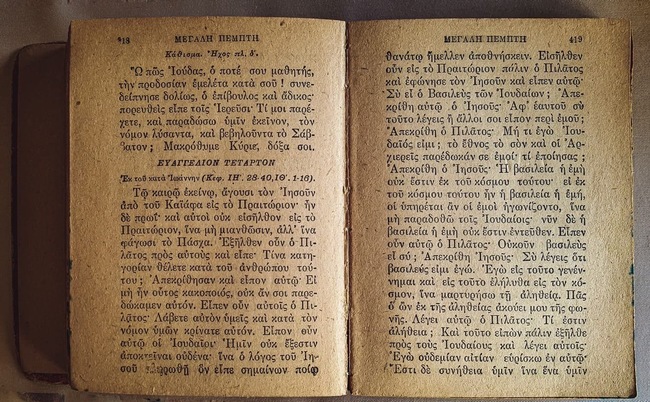 418 ΜΕΓΑΛΗ ΠΕΜΠΤΗ
Κάθισμα. Ἦχος πλ. δ'.
Ὢ πῶς Ἰούδας, ὁ ποτέ σου μαθητής,
τὴν προδοσίαν ἐμελέτα κατὰ σοῦ ! συνε-
δείπνησε δολίως, ὁ ἐπίβουλος καὶ ἄδικος·
πορευθεὶς εἶπε τοῖς Ἱερεῦσι· Τί μοι παρέ-
χετε, καὶ παραδώσω ὑμῖν ἐκεῖνον, τὸν
νόμον λύσαντα, καὶ βεβηλοῦντα τὸ Σάβ-
βατον ; Μακρόθυμε Κύριε, δόξα σοι.
ΕΥΑΓΓΕΛΙΟΝ ΤΕΤΑΡΤΟΝ
Ἐκ τοῦ κατὰ Ἰωάννην (Κεφ. ΙΗ'. 28-40, ΙΘ'. 1-16).
Τῷ καιρῷ ἐκείνῳ, ἄγουσι τὸν Ἰησοῦν
ἀπὸ τοῦ Καϊάφα εἰς τὸ Πραιτώριον· ἦν
δὲ πρωΐ· καὶ αὐτοὶ οὐκ εἰσῆλθον εἰς τὸ
Πραιτώριον, ἵνα μὴ μιανθῶσιν, ἀλλ' ἵνα
φάγωσι τὸ Πάσχα. Ἐξῆλθεν οὖν ὁ Πι-
λᾶτος πρὸς αὐτοὺς καὶ εἶπε· Τίνα κατη-
γορίαν θέλετε κατὰ τοῦ ἀνθρώπου τού-
του ; Ἀπεκρίθησαν καὶ εἶπον αὐτῷ· Εἰ
μὴ ἦν οὗτος κακοποιός, οὐκ ἄν σοι παρε-
δώκαμεν αὐτόν. Εἶπεν οὖν αὐτοῖς ὁ Πι-
λᾶτος· Λάβετε αὐτὸν ὑμεῖς καὶ κατὰ τὸν
νόμον ὑμῶν κρίνατε αὐτόν. Εἶπον οὖν
αὐτῷ οἱ Ἰουδαῖοι· Ἡμῖν οὐκ ἔξεστιν
ἀποκτεῖναι οὐδένα· ἵνα ὁ λόγος τοῦ Ἰη-
σοῦ πληρωθῇ ὃν εἶπε σημαίνων ποίῳ
ΜΕΓΑΛΗ ΠΕΜΠΤΗ 419
θανάτῳ ἤμελλεν ἀποθνήσκειν. Εἰσῆλθεν
οὖν εἰς τὸ Πραιτώριον πάλιν ὁ Πιλᾶτος
καὶ ἐφώνησε τὸν Ἰησοῦν καὶ εἶπεν αὐτῷ·
Σὺ εἶ ὁ Βασιλεὺς τῶν Ἰουδαίων ; Ἀπε-
κρίθη αὐτῷ ὁ Ἰησοῦς· Ἀφ' ἑαυτοῦ σὺ
τοῦτο λέγεις ἢ ἄλλοι σοι εἶπον περὶ ἐμοῦ ;
Ἀπεκρίθη ὁ Πιλᾶτος· Μή τι ἐγὼ Ἰου-
δαῖός εἰμι ; τὸ ἔθνος τὸ σὸν καὶ οἱ Ἀρ-
χιερεῖς παρέδωκάν σε ἐμοί· τί ἐποίησας ;
Ἀπεκρίθη ὁ Ἰησοῦς· Ἡ βασιλεία ἡ ἐμὴ
οὐκ ἔστιν ἐκ τοῦ κόσμου τούτου· εἰ ἐκ
τοῦ κόσμου τούτου ἦν ἡ βασιλεία ἡ ἐμή,
οἱ ὑπηρέται ἂν οἱ ἐμοὶ ἠγωνίζοντο, ἵνα
μὴ παραδοθῶ τοῖς Ἰουδαίοις· νῦν δὲ ἡ
βασιλεία ἡ ἐμὴ οὐκ ἔστιν ἐντεῦθεν. Εἶπεν
οὖν αὐτῷ ὁ Πιλᾶτος· Οὐκοῦν βασιλεὺς
εἶ σύ ; Ἀπεκρίθη Ἰησοῦς· Σὺ λέγεις ὅτι
βασιλεύς εἰμι ἐγώ. Ἐγὼ εἰς τοῦτο γεγέν-
νημαι καὶ εἰς τοῦτο ἐλήλυθα εἰς τὸν κό-
σμον, ἵνα μαρτυρήσω τῇ ἀληθείᾳ. Πᾶς
ὁ ὢν ἐκ τῆς ἀληθείας ἀκούει μου τῆς φω-
νῆς. Λέγει αὐτῷ ὁ Πιλᾶτος· Τί ἐστιν
ἀλήθεια ; Καὶ τοῦτο εἰπὼν πάλιν ἐξῆλθε
πρὸς τοὺς Ἰουδαίους καὶ λέγει αὐτοῖς·
Ἐγὼ οὐδεμίαν αἰτίαν εὑρίσκω ἐν αὐτῷ·
Ἔστι δὲ συνήθεια ὑμῖν ἵνα ἕνα ὑμῖν